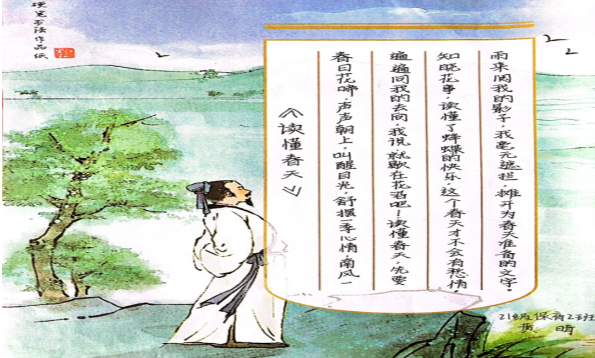 硬笔书法作品纸
《读懂春天》
春日花啼,声声朝上,叫醒目光,舒摆一季心情,南风一
遍遍问我的去向,我说,就歇在花香吧!读懂春天,先要
知晓花事,读懂了烨烨的快乐,这个春天才不会有愁情,
雨来阅我的影子,我毫无遮拦,摊开为春天准备的文字。
21级保育2班
黄